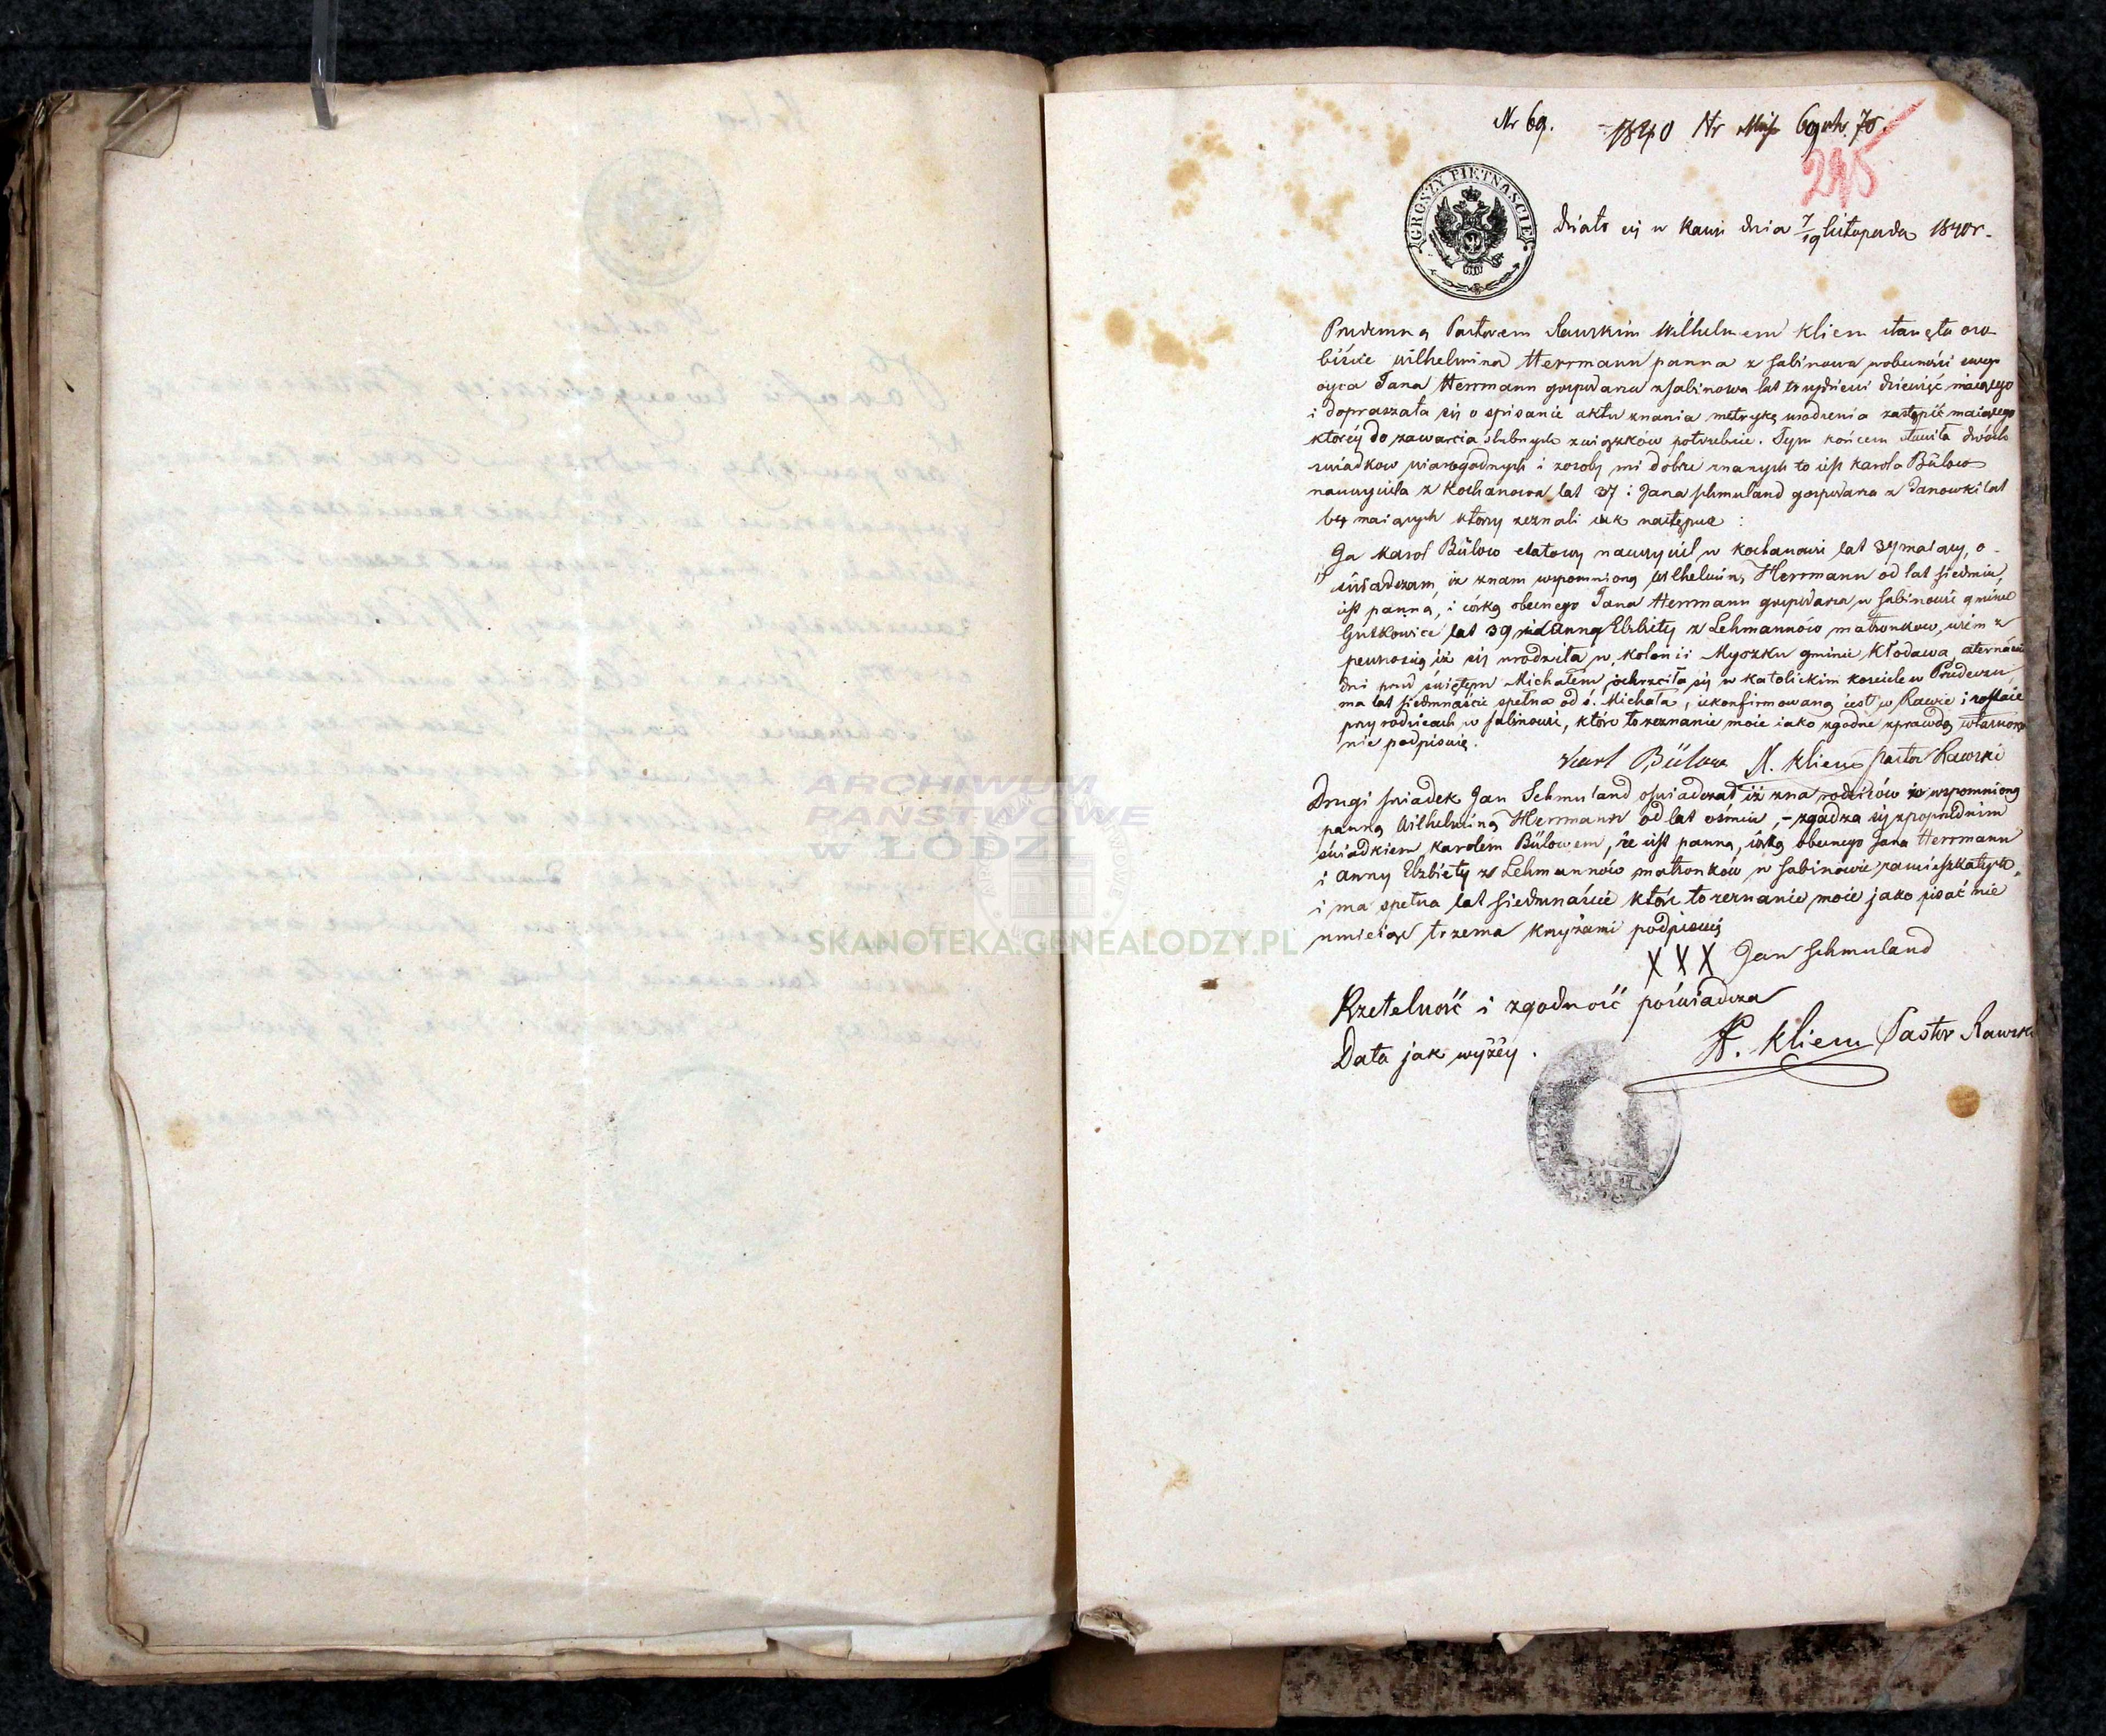 Nr 69. 1840 Nr 69 70.
245
GROSZY PIĘTNAŚCIE
Działo się w Rawie dnia 7/19 Listopada 1840 r.
Przedemną Pastorem Rawskim Wilhelmem Kliem stanęła oso-
biście Wilhelmina Herrmann panna z Sabinowa w obecności swego
oyca Jana Herrmann gospodarza z Sabinowa lat trzydzieści dziewięć maiącego
i dopraszała się o spisanie aktu znania metrykę urodzenia zastąpić maiącego
którey do zawarcia ślubnych związków potrzebuie. Tym końcem stawiła dwóch
swiadkow wiarogodnych i z osoby mi dobrze znanych to iest Karola Bülow
nauczyciela z Kochanowa lat 37 i Jana Schmuland gospodarza z Janowki lat
64 maiących którzy zeznali iak następuie :
Ja Karol Bülow etatowy nauczyciel w Kochanowie lat 37 maiący, o-
świadczam, iż znam wspomnioną Wilhelminę Herrmann od lat siedmiu,
iest panną, i córką obecnego Jana Herrmann gospodarza w Sabinowie gminie
Gutkowice lat 39 i Anny Elzbiety z Lehmannów małzonkow, wiem z
pewnością iż się urodziła w kolonii Myszku gminie Kłodawa czternaście
dni przed świętym Michałem, ochrzciła się w katolickim kościele w Przedeczu
ma lat siedmnaście spełna od ś. Michała, ukonfirmowaną iest w Rawie i zostaie
przy rodzicach w Sabinowie, które to zeznanie moie iako zgodne z prawdą własnoręcz
nie podpisuię.
Karl Bülow W. Kliem Pastor Rawski
Drugi swiadek Jan Schmuland oświadczał iż zna wspomnioną
pannę Wilhelminę Herrmann od lat ośmiu, - zgadza się z poprzednim
świadkiem Karolem Bülowem, że iest panną, córką obecnego Jana Herrmann
i Anny Elzbiety z Lehmannów małzonków w Sabinowie zamieszkałych,
i ma spełna lat siedmnaście które to zeznanie moie jako pisać nie
umieiąc trzema krzyżami podpisuię
X X X Jan Schmuland
Rzetelność i zgodność poświadcza
W. Kliem Pastor Rawski
Data jak wyżéy.
ARCHIWUM
PAŃSTWOWE
w ŁODZI
SKANOTEKA.GENEALODZY.PL